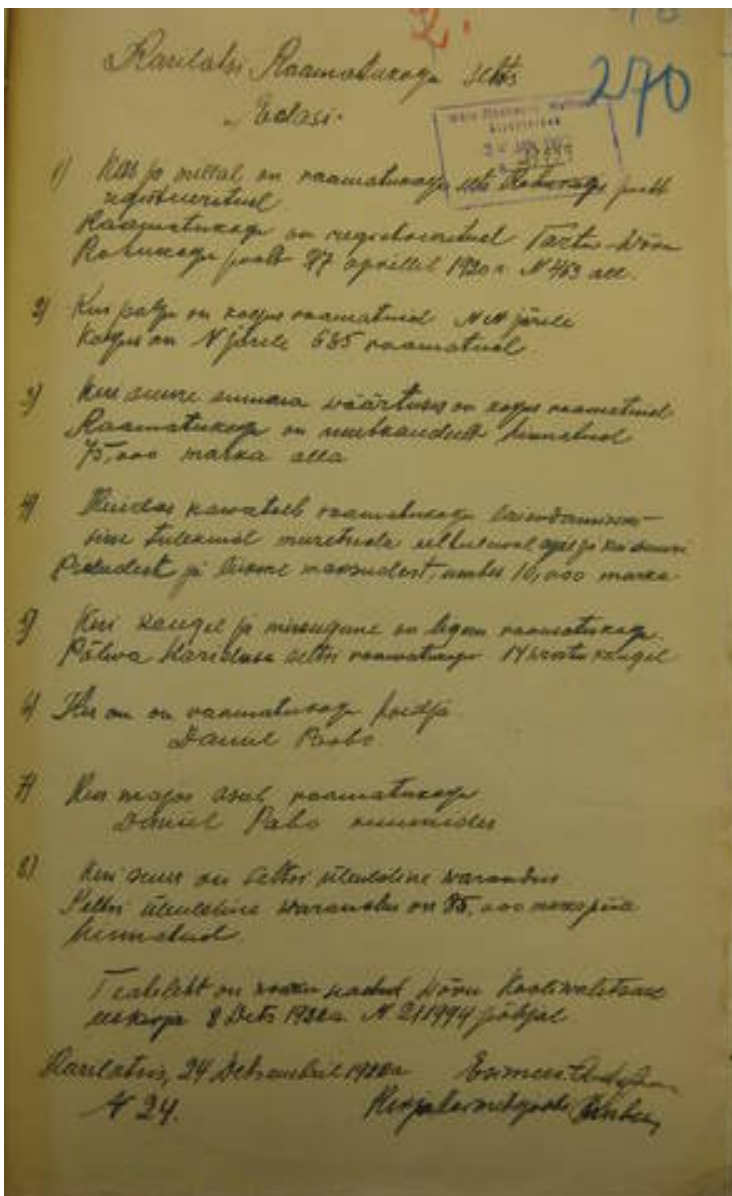 2.
270
Karilatsi Raamatukogu selts
"Edasi"
1) Kus ja millal on raamatukogu selts Rahukogu poolt
registreeritud
Raamatukogu on registreeritud Tartu-Wõru
Rahukogu poolt 27 aprillil 1920 a N 463 all.
2) Kui palju on kogus raamatuid NN järele
Kogus on N järele 635 raamatud
3) Kui suure summa wäärtuses on kogus raamatuid
Raamatukogu on hinnatud
75,000 marka alla
4) Kuidas kawatseb raamatukogu
tulekuid muretseda ja kui suuri
Pidudest ja liikme maksudest, umbes 10,000 marka
5) Kui kaugel ja missugune on ligem raamatukogu
Põlwa Hariduse seltsi raamatukogu 14 wersta kaugel
6) Kes on raamatukogu hoidja
Daniel Pabo
7) Kus majas asub raamatukogu
Daniel Pabo ruumides
8) Kui suur on seltsi üleüldine warandus
Seltsi üleüldine warandus on 85,000
hinnatud.
Teateleht on kokku seatud Wõru Koolivalitsuse
8 Dets 192 a. N 211994 põhjal
Karilatsis, 24 Detsembril 192 a Esimees
N 24. Kirjatoimetaja